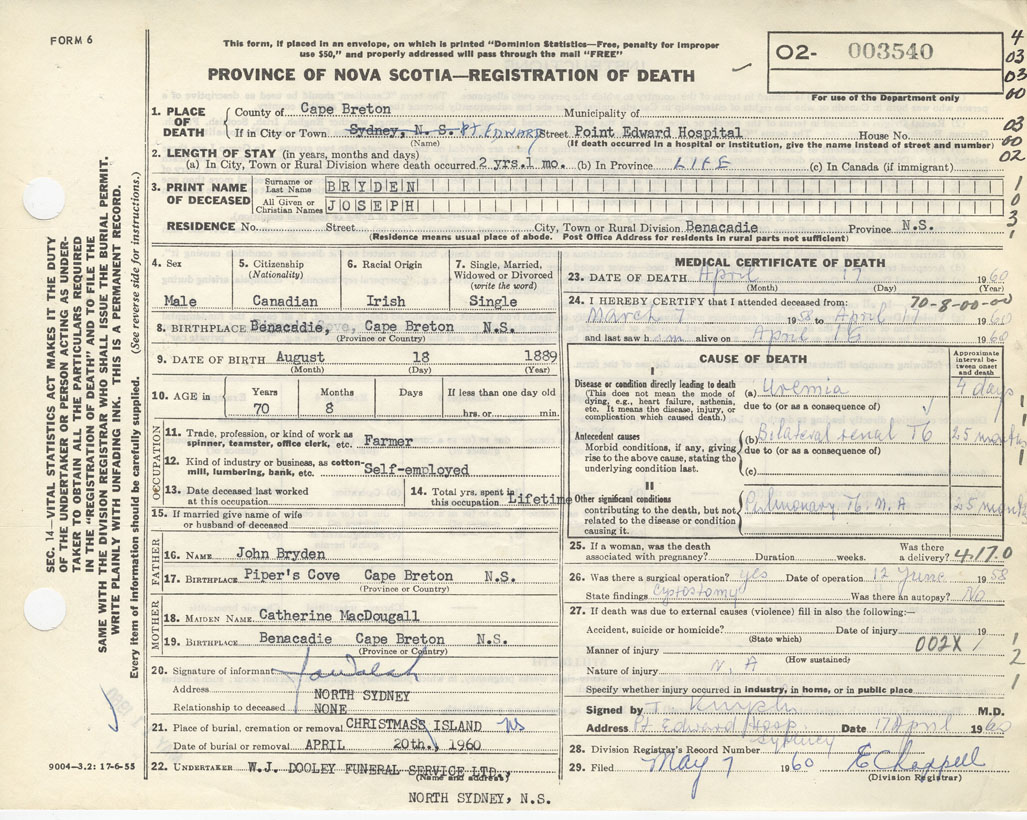 FORM 6
This form, if placed in an envelope, on which is printed "Dominion Statistics—Free, penalty for improper
use $50," and properly addressed will pass through the mail "FREE"
PROVINCE OF NOVA SCOTIA—REGISTRATION OF DEATH
02- 003540
For use of the Department only
4
03
03
00
03
00
02
1
0
3
1
SEC. 14—VITAL STATISTICS ACT MAKES IT THE DUTY
OF THE UNDERTAKER OR PERSON ACTING AS UNDER-
TAKER TO OBTAIN ALL THE PARTICULARS REQUIRED
IN THE "REGISTRATION OF DEATH" AND TO FILE THE
SAME WITH THE DIVISION REGISTRAR WHO SHALL ISSUE THE BURIAL PERMIT.
WRITE PLAINLY WITH UNFADING INK. THIS IS A PERMANENT RECORD.
Every item of information should be carefully supplied. (See reverse side for instructions.)
1. PLACE OF DEATH
County of Cape Breton Municipality of
If in City or Town Sydney, N. S. PT. EDWARD Street Point Edward Hospital House No.
(Name) (If death occurred in a hospital or institution, give the name instead of street and number)
2. LENGTH OF STAY (in years, months and days)
(a) In City, Town or Rural Division where death occurred 2 yrs. 1 mo. (b) In Province LIFE (c) In Canada (if immigrant)
3. PRINT NAME OF DECEASED
Surname or Last Name BRYDEN
All Given or Christian Names JOSEPH
RESIDENCE No. Street City, Town or Rural Division Benacadie Province N.S.
(Residence means usual place of abode. Post Office Address for residents in rural parts not sufficient)
4. Sex
Male
5. Citizenship
(Nationality)
Canadian
6. Racial Origin
Irish
7. Single, Married,
Widowed or Divorced
(write the word)
Single
8. BIRTHPLACE Benacadie, Cape Breton N.S.
(Province or Country)
9. DATE OF BIRTH August 18 1889
(Month) (Day) (Year)
10. AGE in Years Months Days If less than one day
70 8 hrs. or min.
OCCUPATION
11. Trade, profession, or kind of work as
spinner, teamster, office clerk, etc. Farmer
12. Kind of industry or business, as cotton-
mill, lumbering, bank, etc. Self-employed
13. Date deceased last worked
at this occupation
14. Total yrs. spent in
this occupation Lifetime
15. If married give name of wife
or husband of deceased
FATHER
16. NAME John Bryden
17. BIRTHPLACE Piper's Cove Cape Breton N.S.
(Province or Country)
MOTHER
18. MAIDEN NAME Catherine MacDougall
19. BIRTHPLACE Benacadie Cape Breton N.S.
(Province or Country)
20. Signature of informant
Address NORTH SYDNEY
Relationship to deceased NONE
21. Place of burial, cremation or removal CHRISTMASS ISLAND NS
Date of burial or removal APRIL 20th. 1960
22. UNDERTAKER W.J. DOOLEY FUNERAL SERVICE LTD.,
(Name and address)
NORTH SYDNEY, N.S.
9004—3.2: 17-6-55
MEDICAL CERTIFICATE OF DEATH
23. DATE OF DEATH April 17 1960
(Month) (Day) (Year)
24. I HEREBY CERTIFY that I attended deceased from: 70-8-00-00
March 7 1958 to April 17 1960
and last saw him alive on April 16 1960
CAUSE OF DEATH
Approximate interval between onset and death
I
Disease or condition directly leading to death
(This does not mean the mode of
dying, e.g., heart failure, asthenia,
etc. It means the disease, injury, or
complication which caused death.)
(a) Uremia 4 days
due to (or as a consequence of)
Antecedent causes
Morbid conditions, if any, giving
rise to the above cause, stating the
underlying condition last.
(b) Bilateral renal Tb 25 months
due to (or as a consequence of)
(c)
II
Other significant conditions
contributing to the death, but not
related to the disease or condition
causing it.
Pulmonary Tb. M.A 25 months
25. If a woman, was the death
associated with pregnancy? Duration weeks. Was there
a delivery? 4.17.0
26. Was there a surgical operation? yes Date of operation 12 June 1958
State findings Cystostomy Was there an autopsy? No
27. If death was due to external causes (violence) fill in also the following:—
Accident, suicide or homicide? Date of injury 19
(State which)
Manner of injury 002X 1
(How sustained)
2
Nature of injury N. A 1
Specify whether injury occurred in industry, in home, or in public place
Signed by M.D.
Address Pt Edward Hosp. Sydney Date 17 April 1960
28. Division Registrar's Record Number
29. Filed May 7 1960 E Chappell
(Division Registrar)